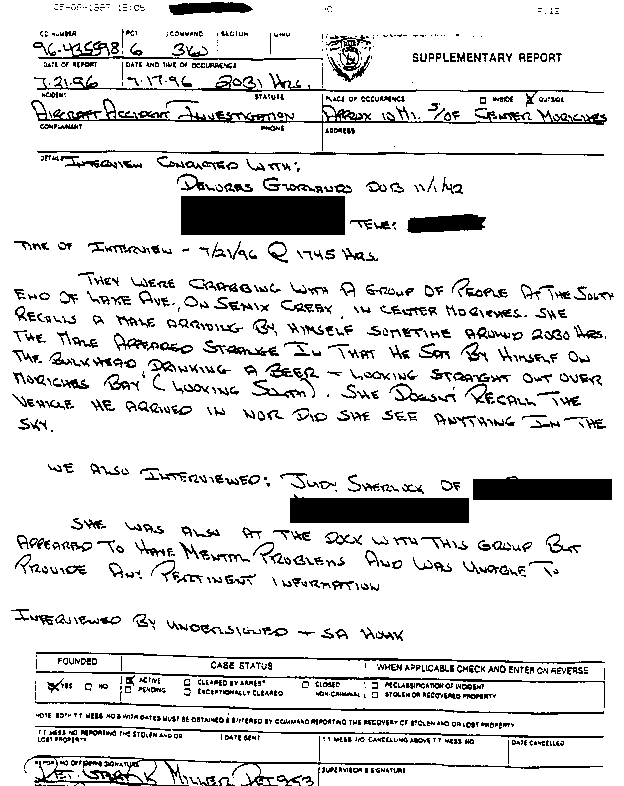 P.12
CC NUMBER PCT COMMAND SECTION
96-435598 6 3K0
SUPPLEMENTARY REPORT
DATE OF REPORT DATE AND TIME OF OCCURRENCE
7-21-96 7-17-96 2031 HRS.
INCIDENT STATUTE PLACE OF OCCURRENCE INSIDE OUTSIDE
AIRCRAFT ACCIDENT INVESTIGATION APPROX 10 MI. S/OF CENTER MORICHES
COMPLAINANT PHONE ADDRESS
DETAILS INTERVIEW CONDUCTED WITH:
DELORES GIORLANDO DOB 11/1/42
TELE:
TIME OF INTERVIEW - 7/21/96 @ 1745 HRS
THEY WERE CRABBING WITH A GROUP OF PEOPLE AT THE SOUTH
END OF LAKE AVE., ON SENIX CREEK, IN CENTER MORICHES. SHE
RECALLS A MALE ARRIVING BY HIMSELF SOMETIME AROUND 2030 HRS.
THE MALE APPEARED STRANGE IN THAT HE SAT BY HIMSELF ON
THE BULKHEAD, DRINKING A BEER - LOOKING STRAIGHT OUT OVER
MORICHES BAY (LOOKING SOUTH). SHE DOESN'T RECALL THE
VEHICLE HE ARRIVED IN NOR DID SHE SEE ANYTHING IN THE
SKY.
WE ALSO INTERVIEWED: JUDY SHERLOCK OF
SHE WAS ALSO AT THE DOCK WITH THIS GROUP BUT
APPEARED TO HAVE MENTAL PROBLEMS AND WAS UNABLE TO
PROVIDE ANY PERTINENT INFORMATION
INTERVIEWED BY UNDERSIGNED - SA
FOUNDED CASE STATUS WHEN APPLICABLE CHECK AND ENTER ON REVERSE
YES NO ACTIVE CLEARED BY ARREST CLOSED RECLASSIFICATION OF INCIDENT
PENDING EXCEPTIONALLY CLEARED NON-CRIMINAL STOLEN OR RECOVERED PROPERTY
NOTE: BOTH T.T. MESS. NO.S WITH DATES MUST BE OBTAINED & ENTERED BY COMMAND REPORTING THE RECOVERY OF STOLEN AND OR LOST PROPERTY
T.T. MESS. NO. REPORTING THE STOLEN AND OR DATE SENT T.T. MESS. NO. CANCELLING ABOVE T.T. MESS. NO. DATE CANCELLED
LOST PROPERTY
REPORTING OFFICERS SIGNATURE SUPERVISOR'S SIGNATURE
DET. K MILLER DET 953